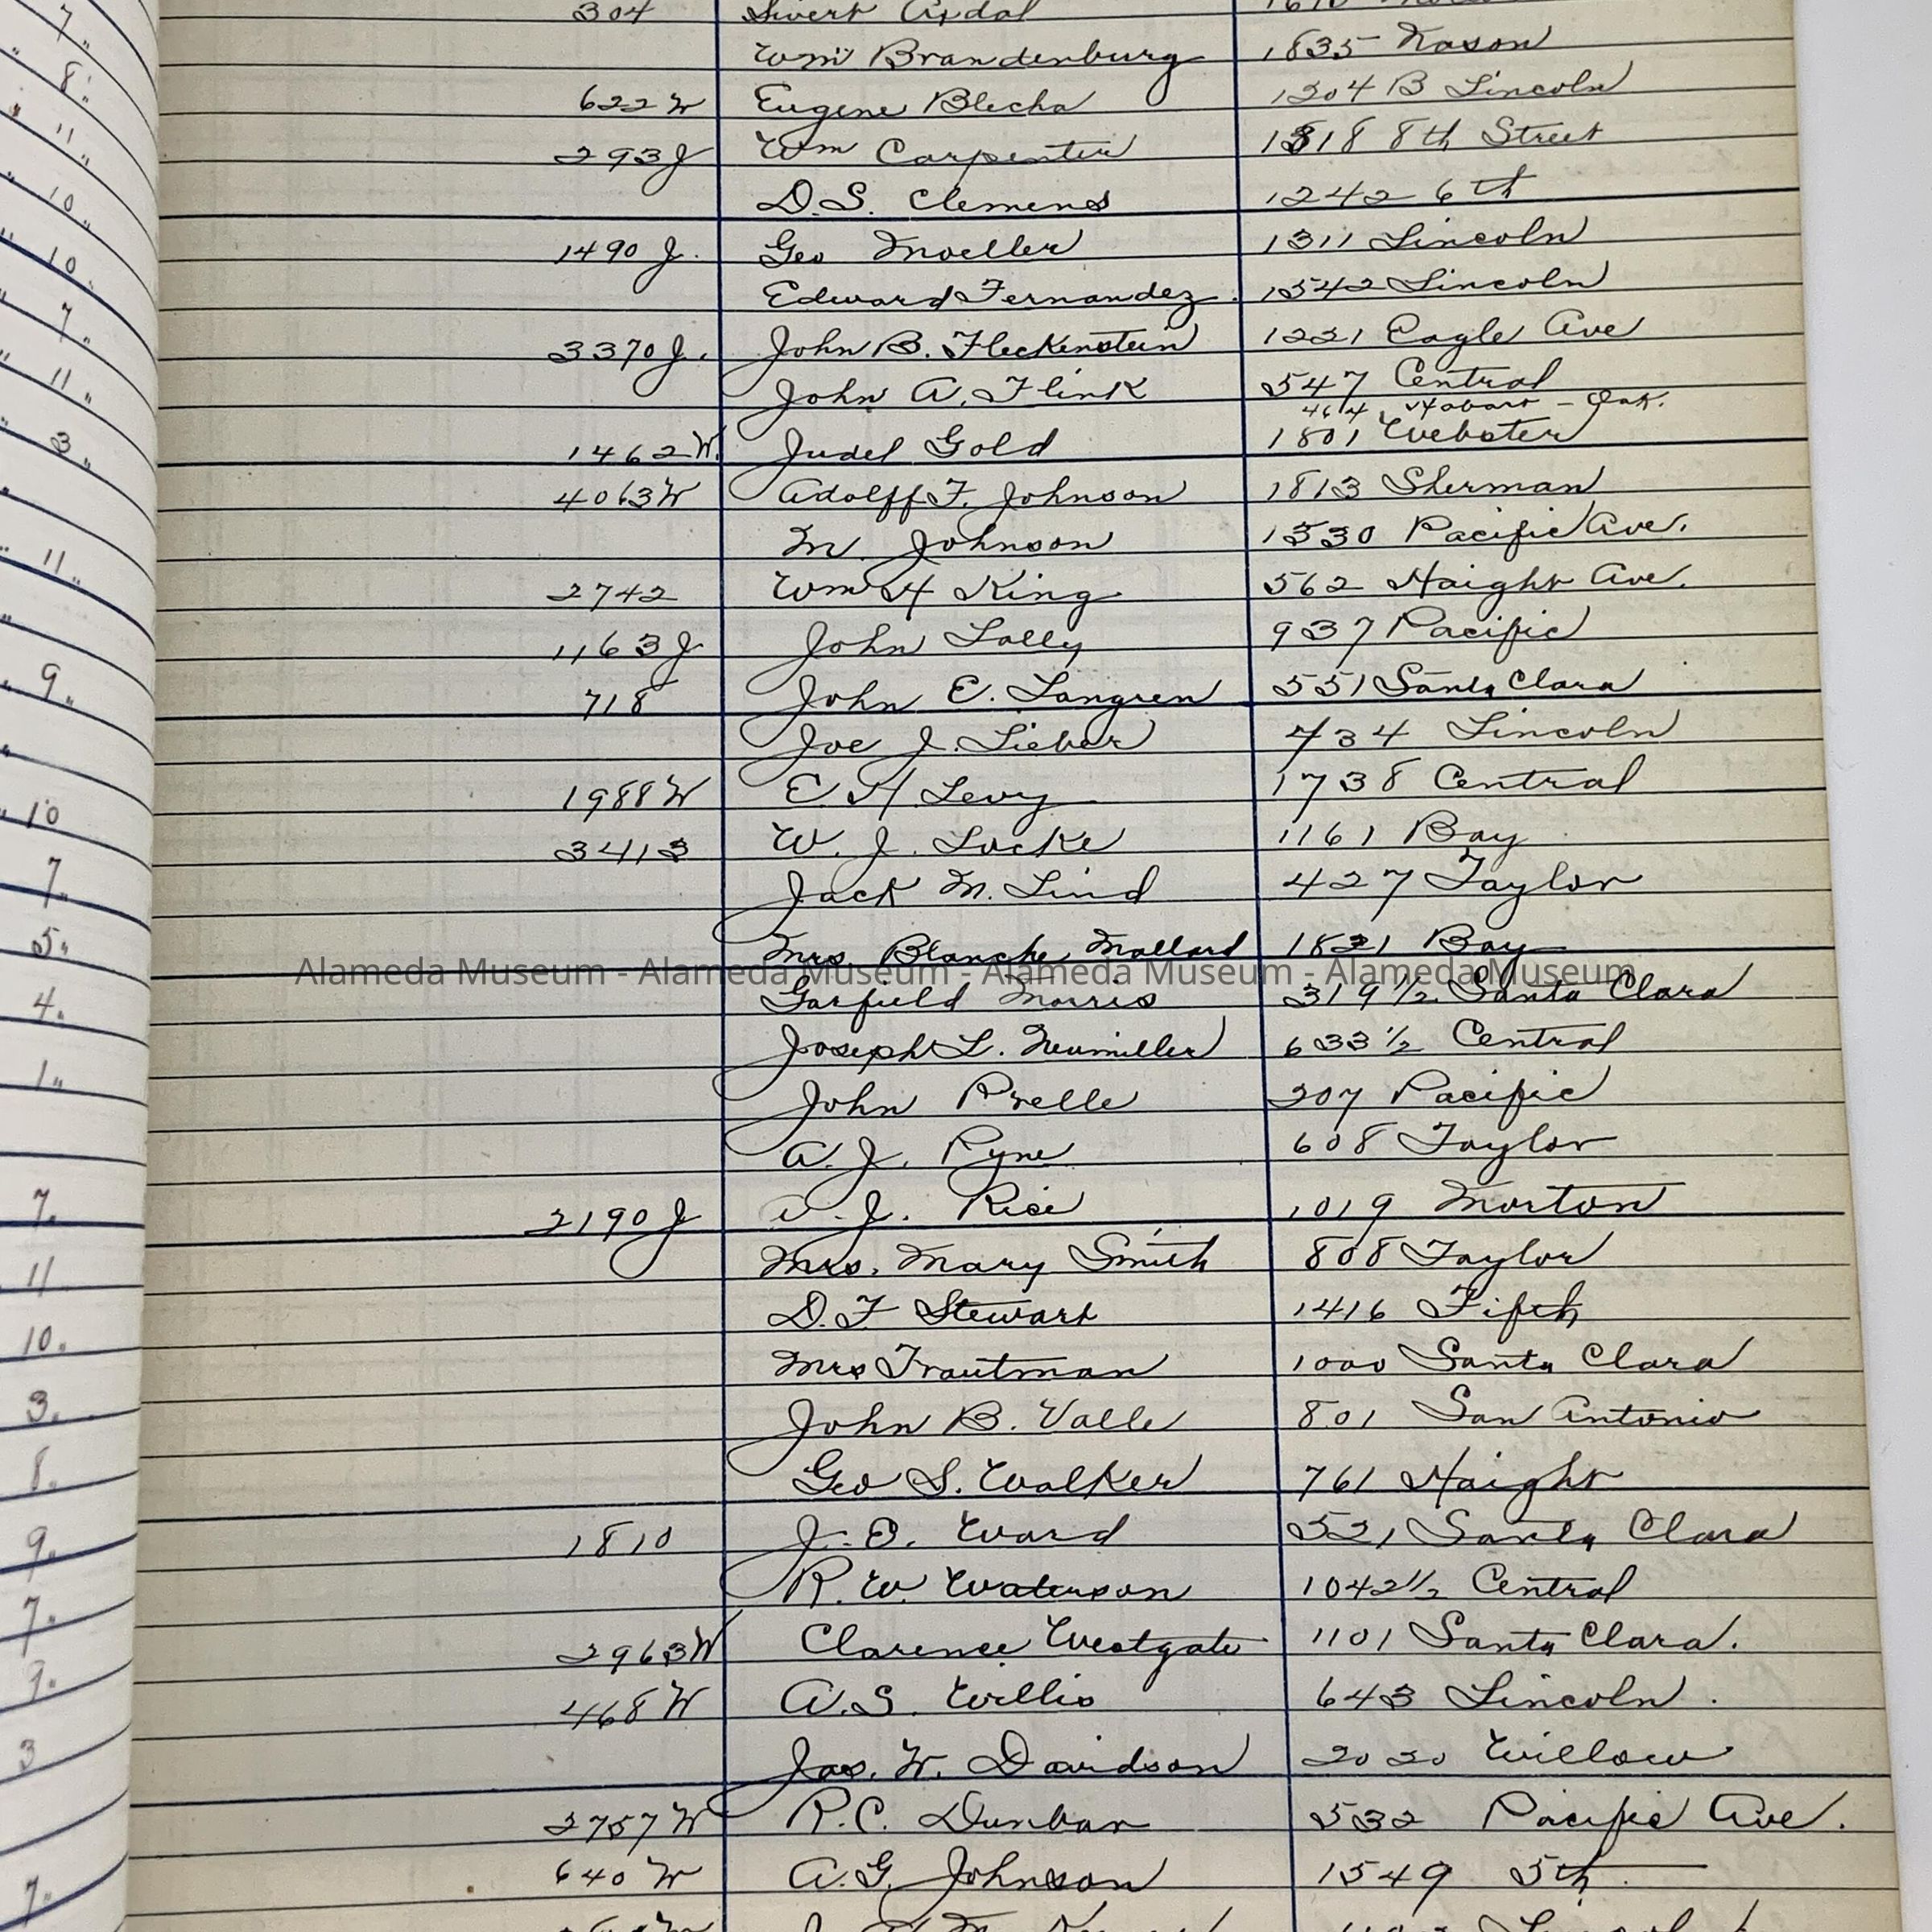 7 "
304 Sivert Axdal
Wm Brandenburg 1835 Nason
8 "
622 W Eugene Blecha 1204 B Lincoln
11 "
293 J Wm Carpenter 1318 8th Street
10 "
D.S. Clemens 1242 6th
10 "
1490 J. Geo Moeller 1311 Lincoln
7 "
Edward Fernandez 1542 Lincoln
11 "
3370 J. John B. Fleckenstein 1221 Eagle Ave
John A. Flink 547 Central
464 Hobart - Oak.
3 "
1462 W. Judel Gold 1801 Webster
4063 W Adolff F. Johnson 1813 Sherman
11 "
M. Johnson 1530 Pacific Ave.
2742 Wm H King 562 Haight Ave.
1163 J John Lally 937 Pacific
9 "
718 John E. Langren 551 Santa Clara
Joe J. Lieber 434 Lincoln
10
1988 W E. H. Levy 1738 Central
7 "
3413 W. J. Locke 1161 Bay
Jack M. Lind 427 Taylor
5 "
Mrs Blanche Mallard 1821 Bay
Alameda Museum - Alameda Museum - Alameda Museum - Alameda Museum
4.
Garfield Morris 319 1/2 Santa Clara
1 "
Joseph L. Neumiller 633 1/2 Central
John Prelle 207 Pacific
A. J. Ryne 608 Taylor
7.
2190 J J. Rice 1019 Morton
11
Mrs. Mary Smith 808 Taylor
10.
D. F Stewart 1416 Fifth
3.
Mrs Trautman 1000 Santa Clara
John B. Valle 801 San Antonio
8.
Geo S. Walker 761 Haight
9.
1810 J. O. Ward 521 Santa Clara
7.
R. W. Waterson 1042 1/2 Central
9.
2963 W Clarence Westgate 1101 Santa Clara.
468 W A.S. Willis 643 Lincoln.
3
Jas. W. Davidson 2020 Willow
2757 W R.C. Dunbar 532 Pacific Ave.
7.
640 W A.G. Johnson 1549 5th